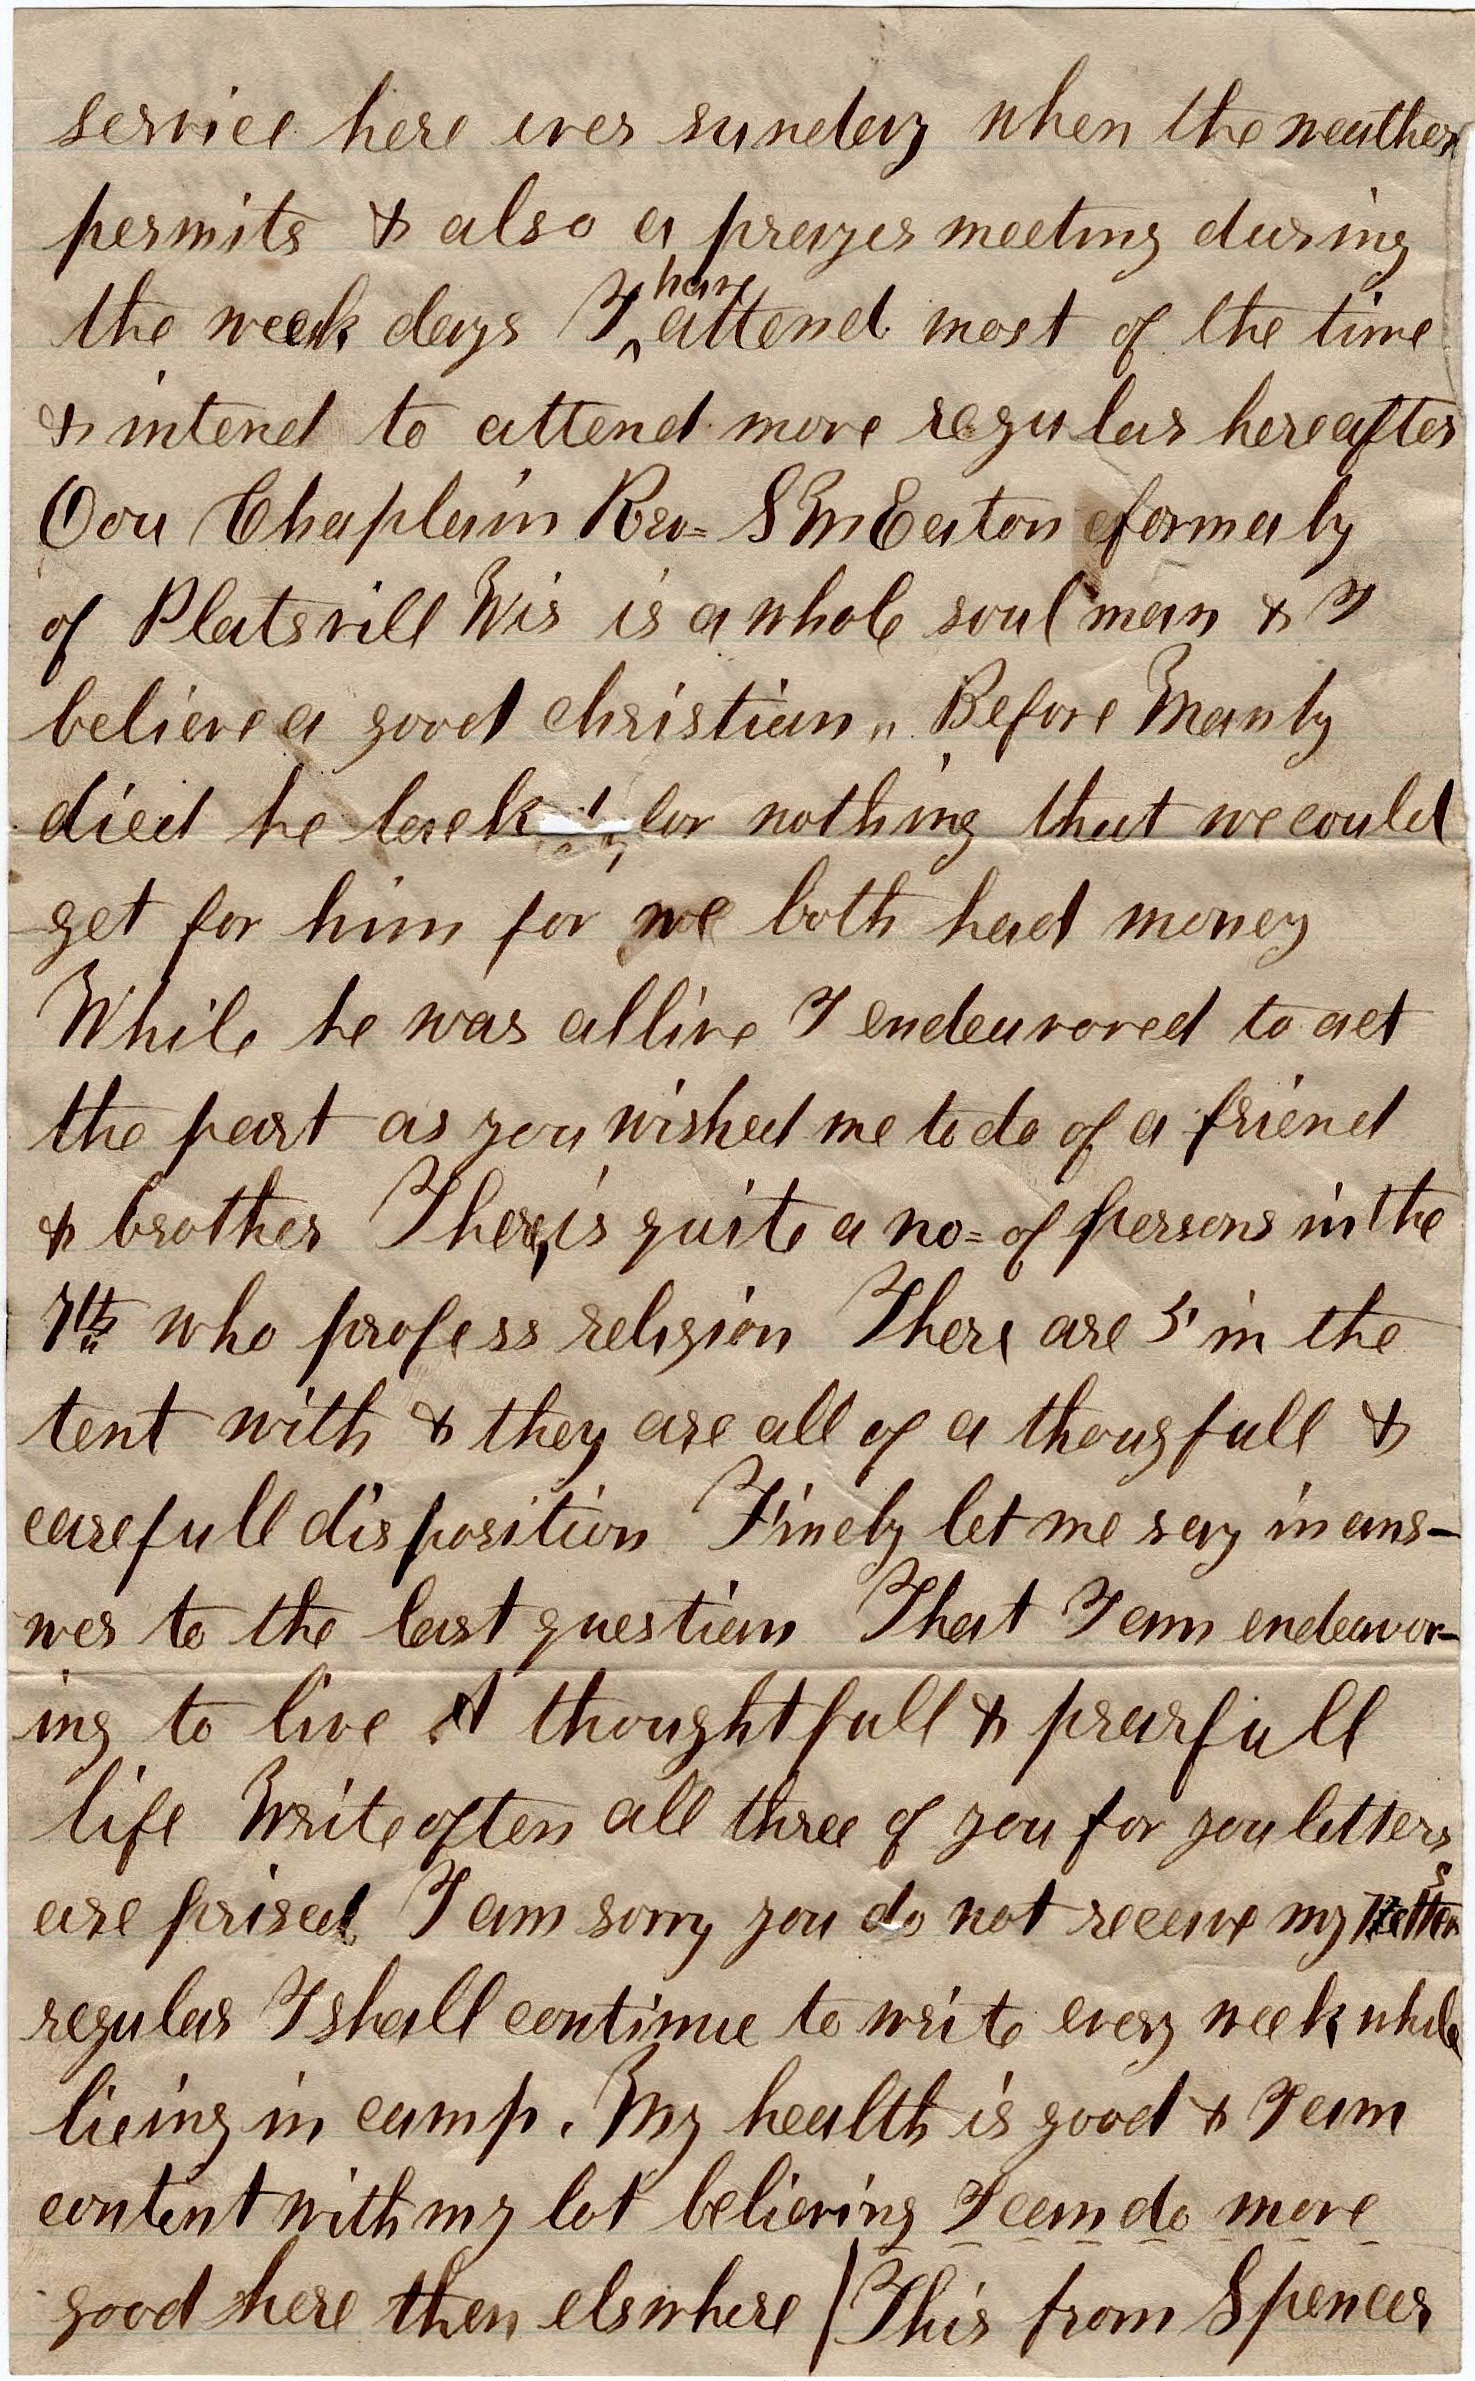 service here ever sunday when the weather
permits & also a prayer meeting during
the week days I have attend most of the time
& intend to attend more regular hereafter
Oou Chaplain Rev= S M Eaton formaly
of Platsvill Wis is a whole soul man & I
believe a good christian „ Before Manly
died he lack for nothing that we could
get for him for we both had money
While he was allive I endeavored to act
the part as you wished me to do of a friend
& brother There, is quite a no= of persons in the
7th who profess religion There are 5 in the
tent with & they are all of a thougfull &
carefull disposition Finely let me say in ans-
wer to the last question That I am endeavor-
ing to live A thoughtfull & prarfull
life Write often all three of you for you letters
are prised I am sorry you do not receive my letters
regular I shall continue to write every week while
lieing in camp. My health is good & I am
content with my lot believing I cam do more
good here then elswhere / This from Spencer